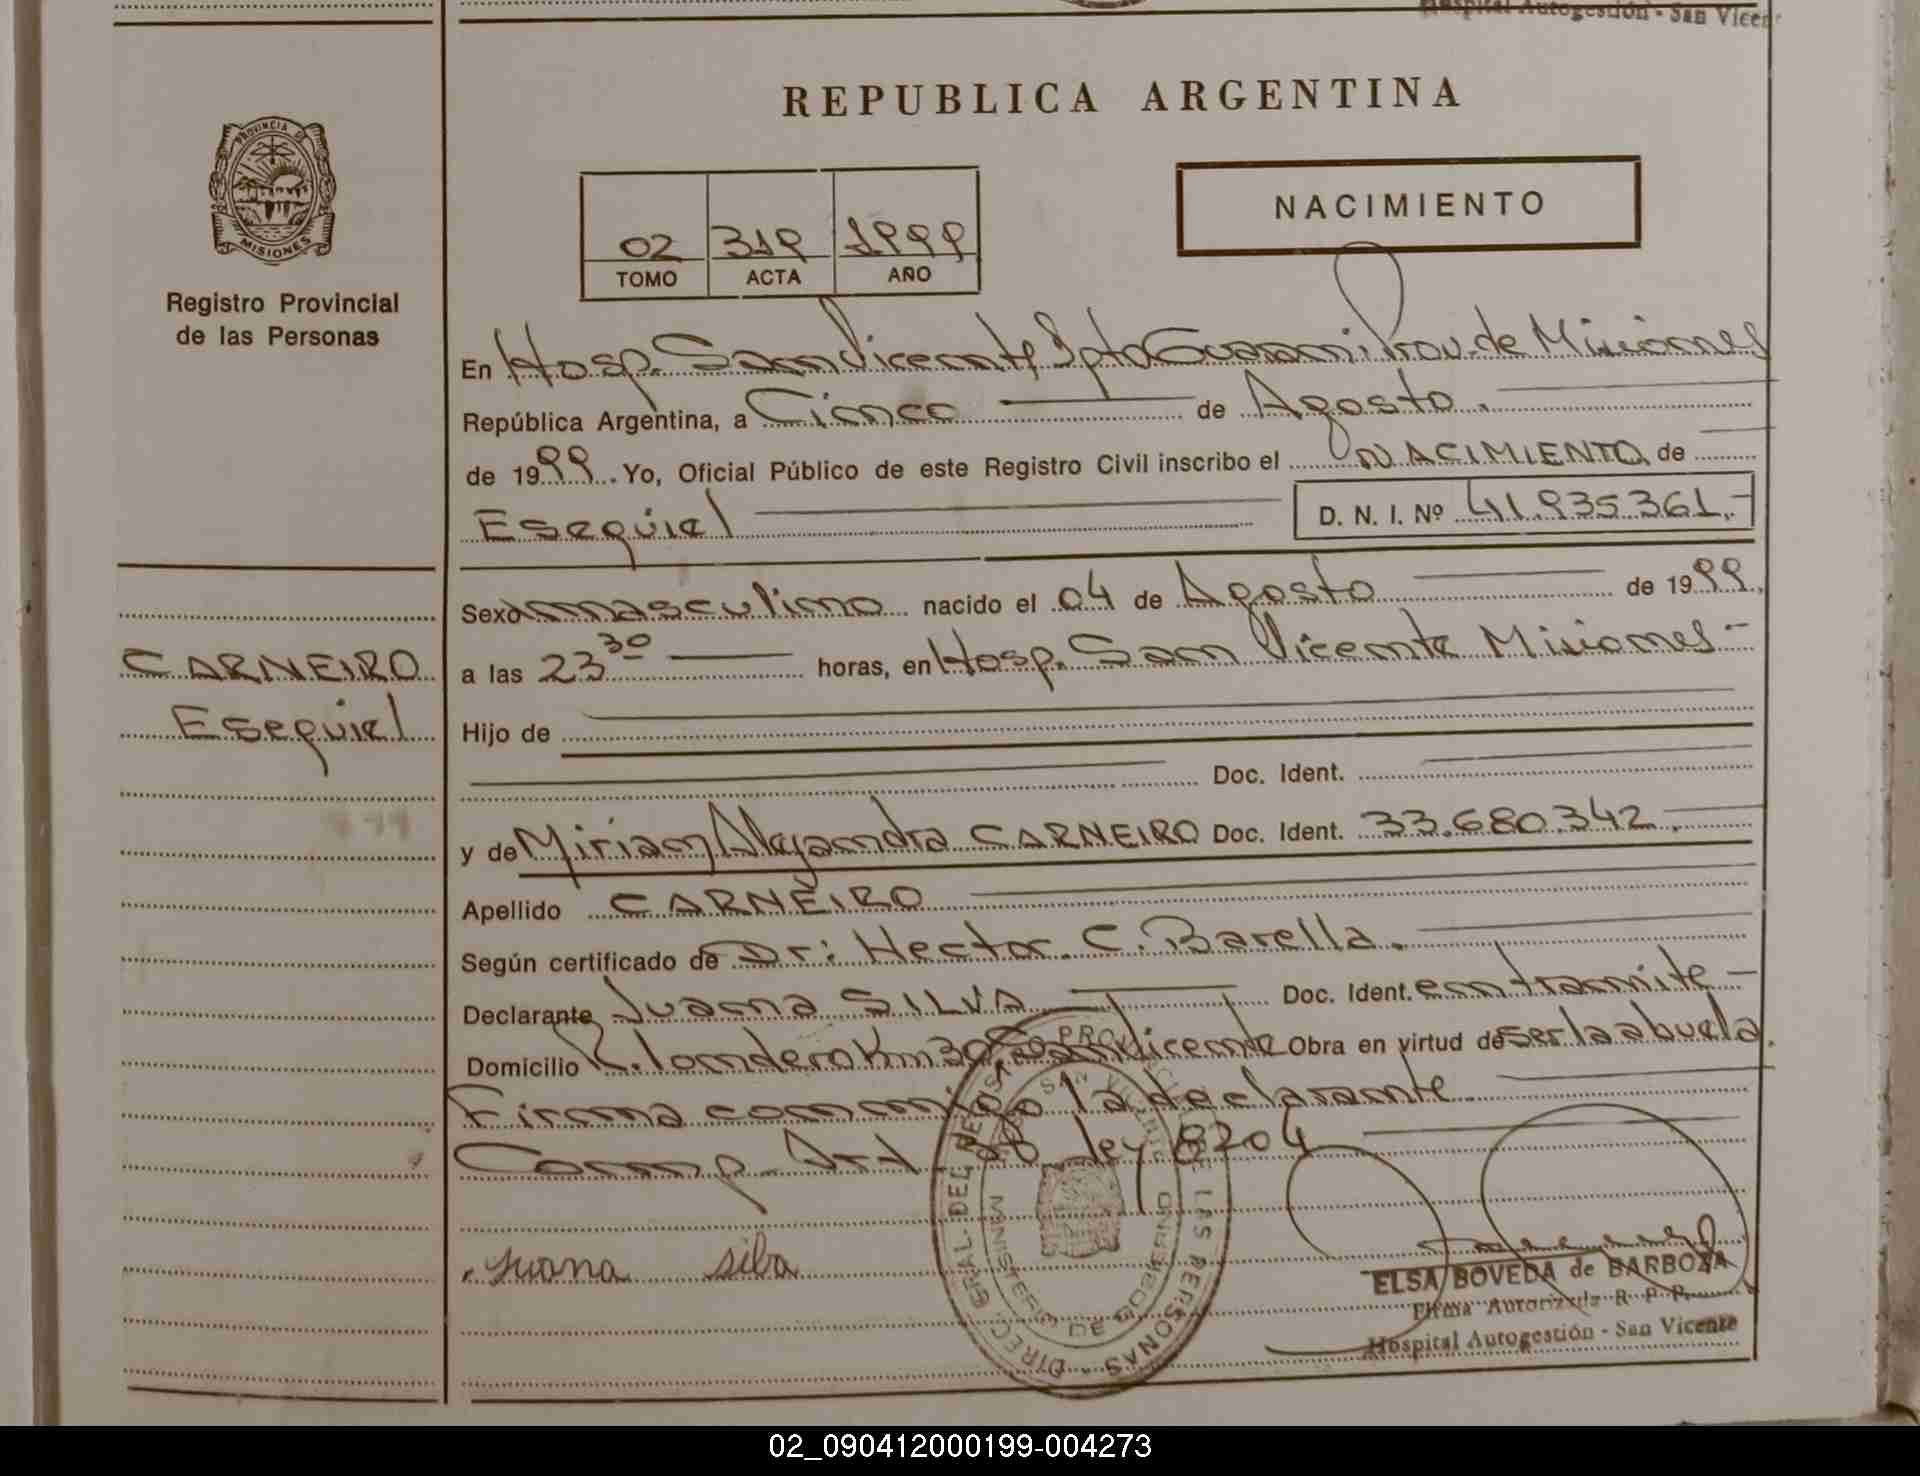 Hospital Autogestión - San Vicente
REPUBLICA ARGENTINA
PROVINCIA DE
MISIONES
Registro Provincial
de las Personas
NACIMIENTO
02 319 1999
TOMO ACTA AÑO
En Hosp. San Vicente Dpto Guarani Prov. de Misiones
República Argentina, a Cinco de Agosto.
de 1999. Yo, Oficial Público de este Registro Civil inscribo el NACIMIENTO de
Esequiel D. N. I. Nº 41.935.361.-
CARNEIRO
Esequiel
Sexo masculino nacido el 04 de Agosto de 1999.
a las 23 30 horas, en Hosp. San Vicente Misiones -
Hijo de
Doc. Ident.
y de Miriam Alejandra CARNEIRO Doc. Ident. 33.680.342.
Apellido CARNEIRO
Según certificado de Dr: Hector. C. Barella.
Declarante Juana SILVA Doc. Ident. en tramite -
Domicilio Km 30 San Vicente Obra en virtud de ser la abuela.
Firma conmigo la declarante.
Comp. Art 28 ley 8204
Juana silva
DIREC. GRAL. DEL REGISTRO PROVINCIAL DE LAS PERSONAS
SAN VICENTE
MINISTERIO DE GOBIERNO
ELSA BOVEDA de BARBOZA
Firma Autorizada R. P. P.
Hospital Autogestión - San Vicente
02_090412000199-004273